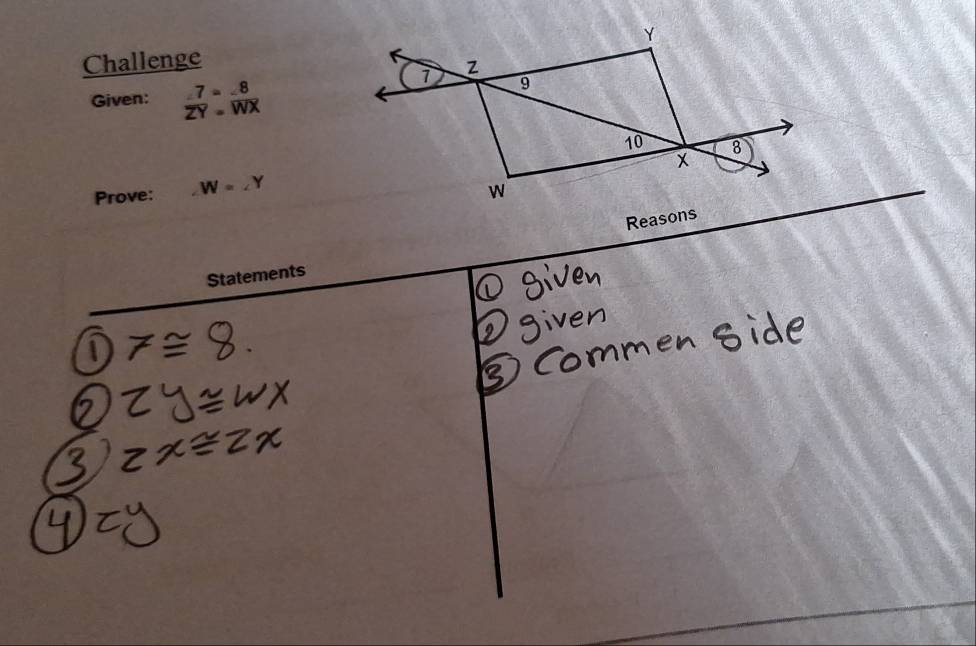 Challenge
Given: ∠7 = ∠8
ZY = WX
Prove: ∠W = ∠Y
7
Z
Y
9
10
X
8
W
Statements
Reasons
① 7 ≅ 8.
② ZY ≅ WX
③ ZX ≅ ZX
④ ZY
① given
② given
③ Commen side